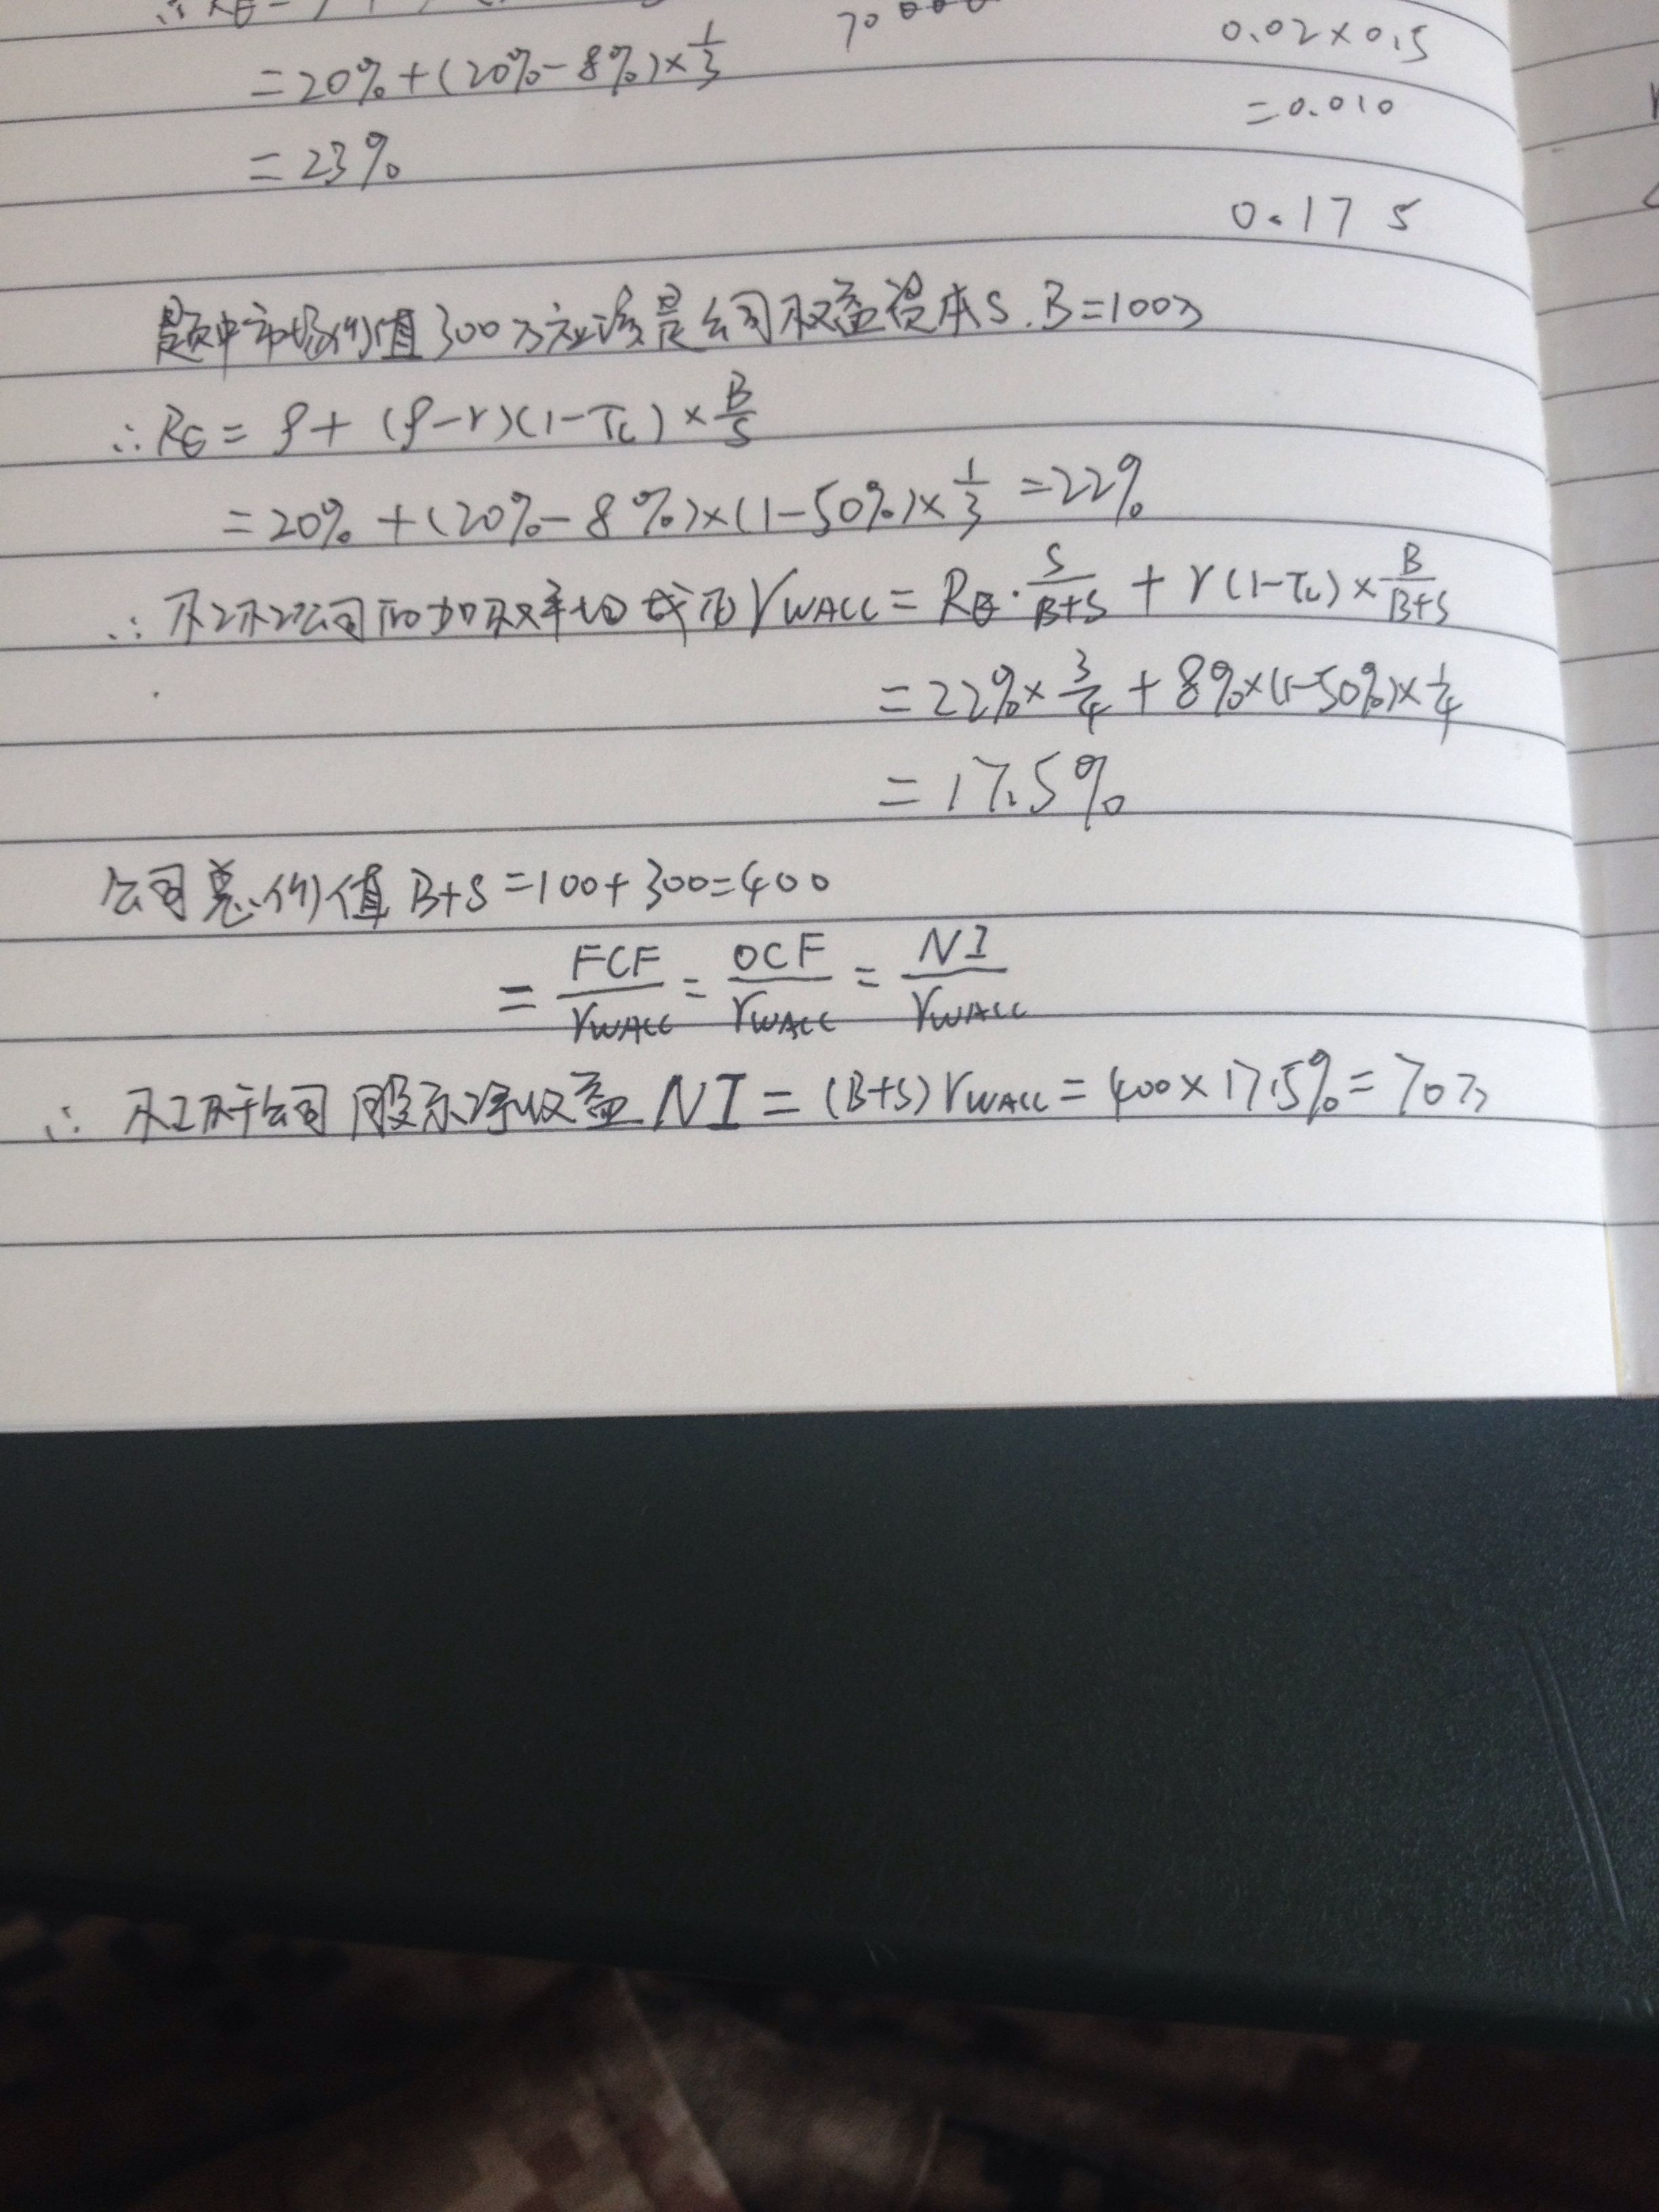 = 20% + (20% - 8%) × 1/3
70000
0.02 × 0.5
= 23%
= 0.010
0.175
题中市场价值300万应该是公司权益资本S. B=100万
∴ RE = ρ + (ρ - r)(1 - Tc) × B/S
= 20% + (20% - 8%) × (1 - 50%) × 1/3 = 22%
∴ 公司的加权平均成本 rWACC = RE · S/(B+S) + r(1 - Tc) × B/(B+S)
= 22% × 3/4 + 8% × (1-50%) × 1/4
= 17.5%
公司总价值 B+S = 100 + 300 = 400
= FCF/rWACC = OCF/rWACC = NI/rWACC
∴ 公司股东净收益 NI = (B+S) rWACC = 400 × 17.5% = 70万